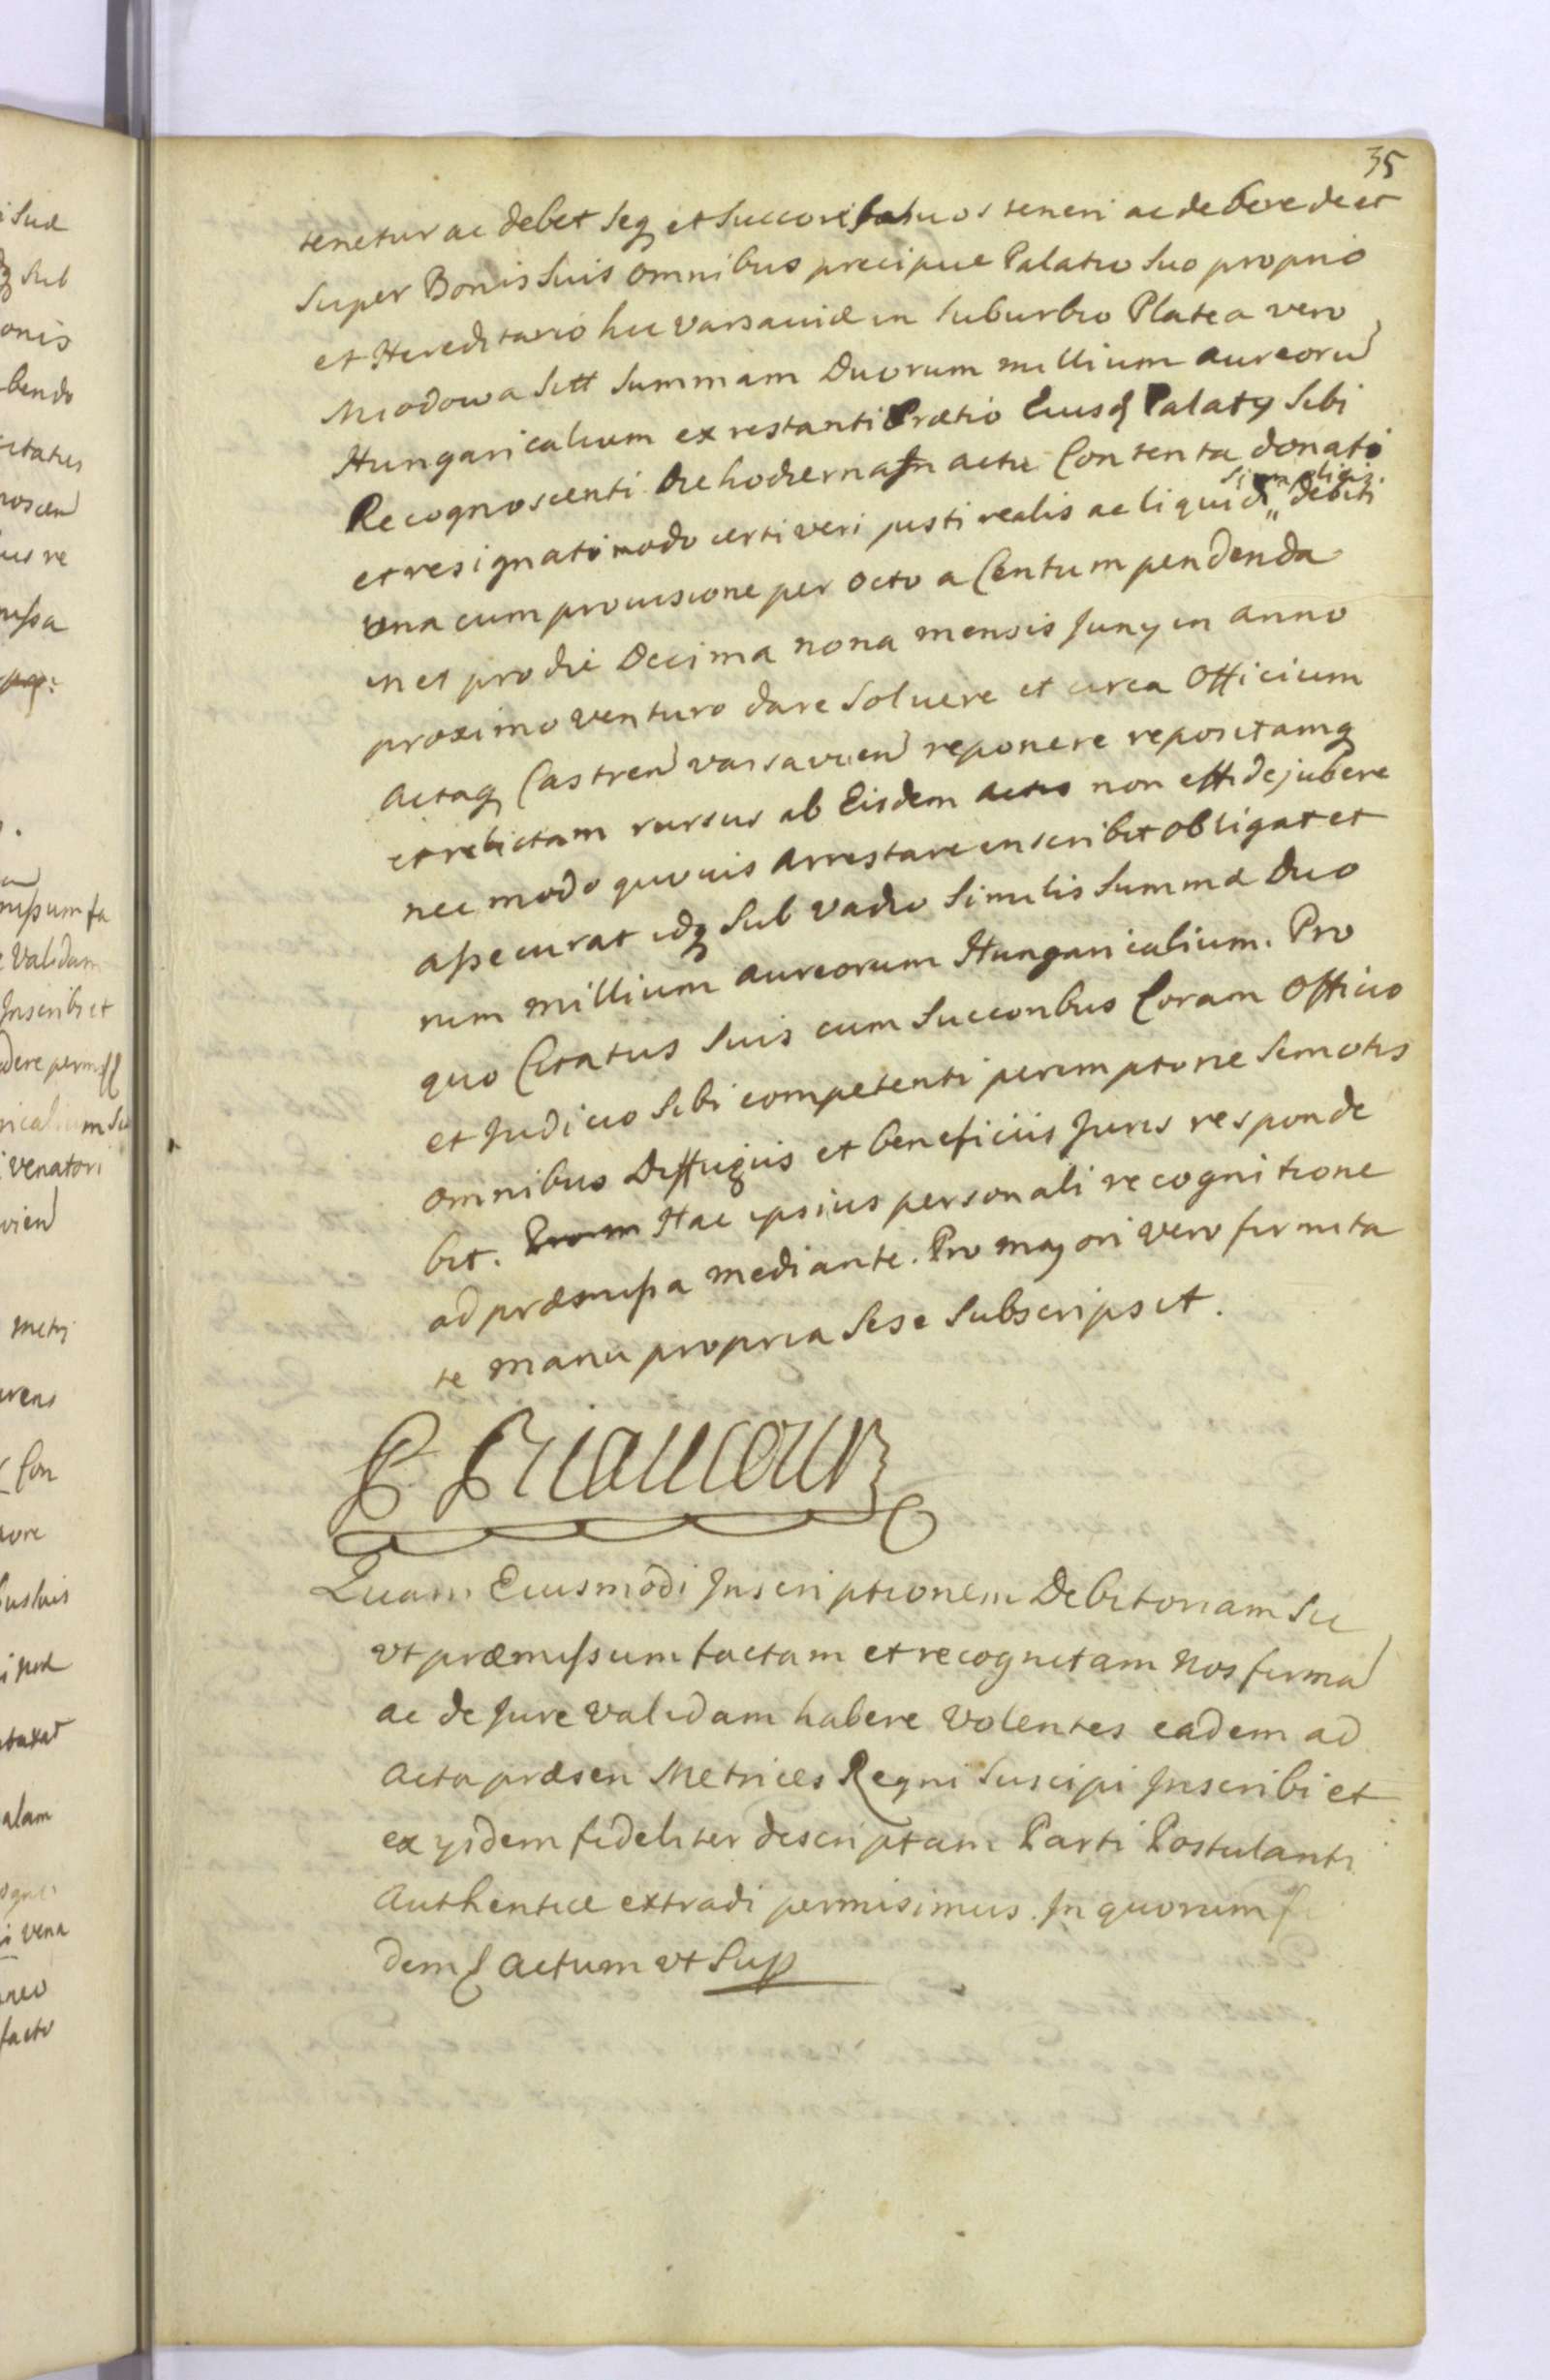 35
tenetur ac debet seq et Successores suos teneri ac debere de et
super Bonis suis omnibus precipue Palatio suo proprio
et Hereditario hic Varsaviæ in suburbio Platea vero
Miodowa sitt summam Duorum millium aureorū
Hungaricalium ex restanti Prætio Eiusd Palatÿ sibi
Recognoscenti die hodierna In actu Contenta donati
simplicis
et resignati modo certi veri justi realis ac liquidi „ debiti
Una cum provisione per octo a Centum pendenda
in et pro die Decima nona mensis Junÿ in anno
proximo venturo dare solvere et circa Officium
actaq Castren Varsavien reponere repositamq
et relictam rursus ab Eisdem actis non effidejubere
nec modo quovis arrestare inscribit obligat et
assecurat idq sub vadio similis summæ Duo
rum millium aureorum Hungaricalium. Pro
quo Citatus suis cum Successoribus Coram Officio
et Judicio sibi competenti peremptorie semotis
omnibus Diffugiis et beneficiis Juris responde
bit. Hac ipsius personali recognitione
ad præmissa mediante. Pro majori vero firmita
te manu propria sese subscripsit.
P Riaucour
Quam Eiusmodi Inscriptionem Debitoriam sic
ut præmissum factam et recognitam nos firmā
ac de Jure validam habere volentes eadem ad
acta præsen Metrices Regni suscipi Inscribi et
ex ÿsdem fideliter descriptam Parti Postulanti
Authentice extradi permisimus. In quorum fi
dem & Actum ut Sup
i suæ
q sub
onis
bendo
citatus
noscen
ius re
missa
missum fa
e validam
Inscribi et
edere permiss
rical ium su
i venatori
vien
metr
urens
Con
uore
bus suis
ataxat
alam
i vena
neo
facto